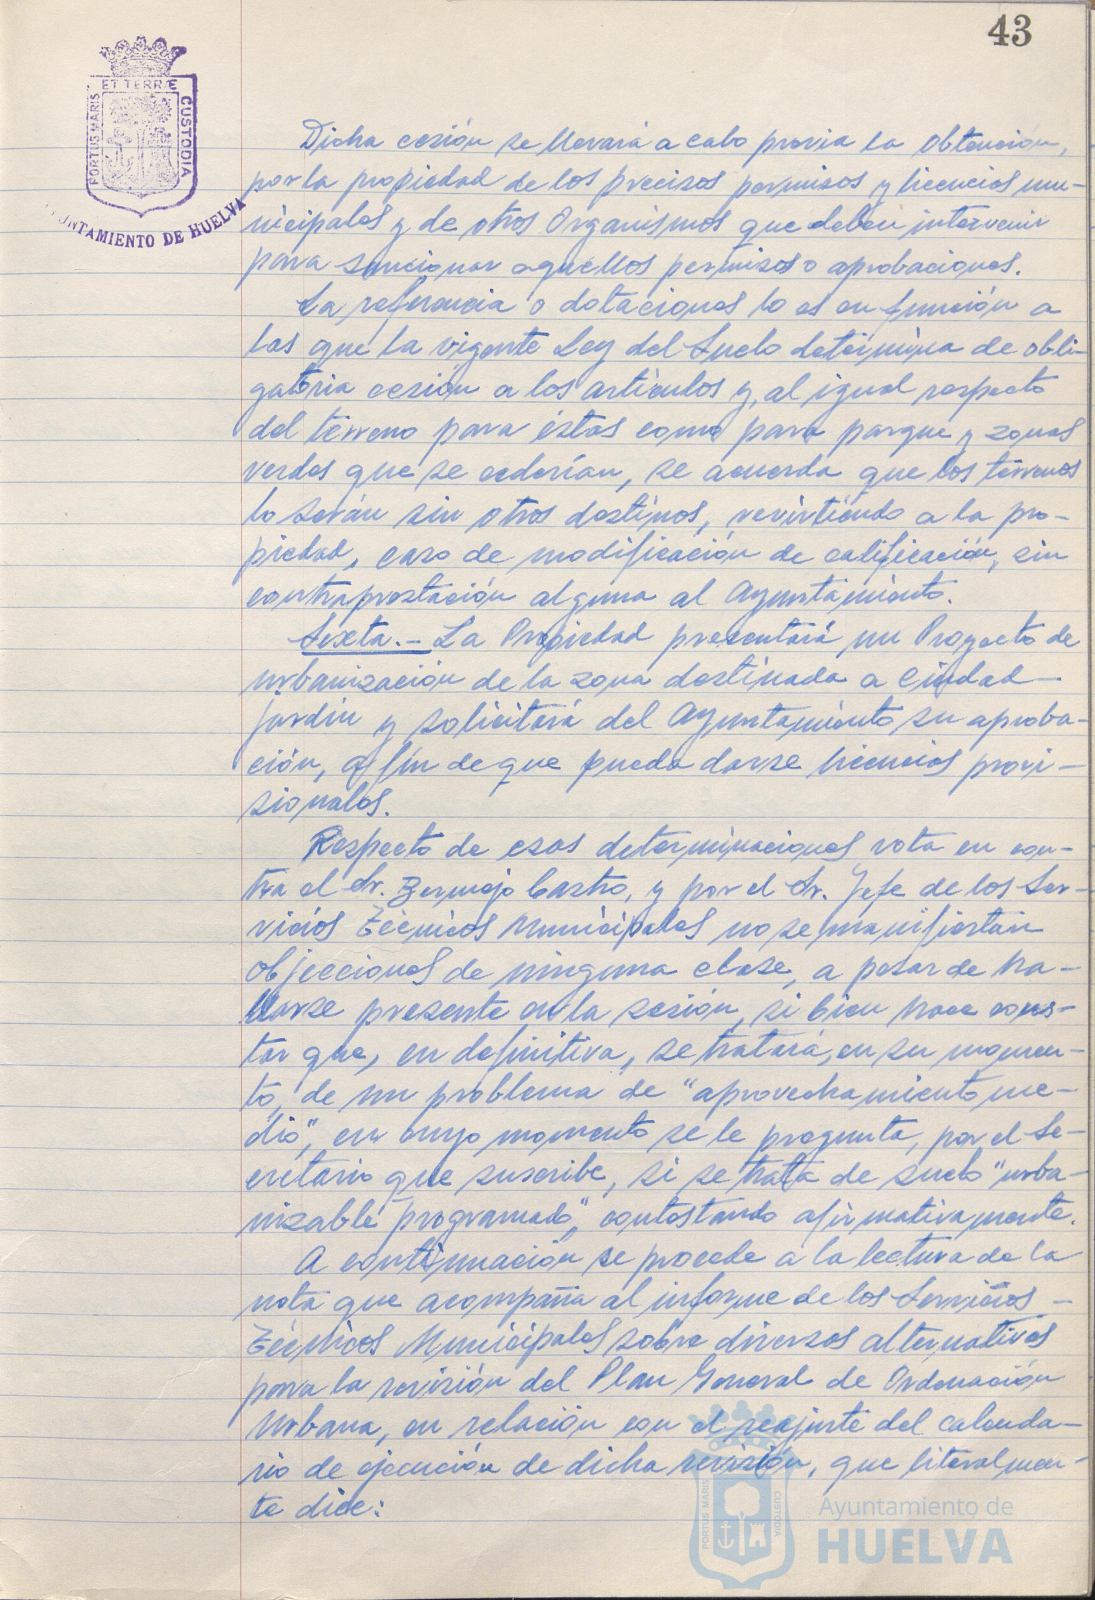 43
ET TERRÆ
PORTUS MARIS
CUSTODIA
AYUNTAMIENTO DE HUELVA
Dicha cesión se llevará a cabo previa la obtención,
por la propiedad de los precisos permisos y licencias mu-
nicipales y de otros Organismos que deben intervenir
para sancionar aquellos permisos o aprobaciones.
La referencia o dotaciones lo es en función a
las que la vigente Ley del Suelo determina de obli-
gatoria cesión a los artículos y, al igual respecto
del terreno para éstas como para parque y zonas
verdes que se cederían, se acuerda que los terrenos
lo serán sin otros destinos, revirtiendo a la pro-
piedad, caso de modificación de calificación, sin
contraprestación alguna al Ayuntamiento.
Sexta.- La Propiedad presentará un Proyecto de
urbanización de la zona destinada a Ciudad-
jardín y solicitará del Ayuntamiento su aproba-
ción, a fin de que pueda darse licencias provi-
sionales.
Respecto de esas determinaciones vota en con-
tra el Sr. Bermejo Castro, y por el Sr. Jefe de los Ser-
vicios Técnicos Municipales no se manifiestan
objecciones de ninguna clase, a pesar de ha-
llarse presente en la sesión, si bien hace cons-
tar que, en definitiva, se tratará, en su momen-
to, de un problema de "aprovechamiento me-
dio", en cuyo momento se le pregunta, por el Se-
cretario que suscribe, si se trata de suelo "urba-
nizable programado", contestando afirmativamente.
A continuación se procede a la lectura de la
nota que acompaña al informe de los Servicios -
Técnicos Municipales sobre diversas alternativas
para la revisión del Plan General de Ordenación
Urbana, en relación con el reajuste del calenda-
rio de ejecución de dicha revisión, que literalmen-
te dice:
PORTUS MARIS
CUSTODIA
Ayuntamiento de
HUELVA